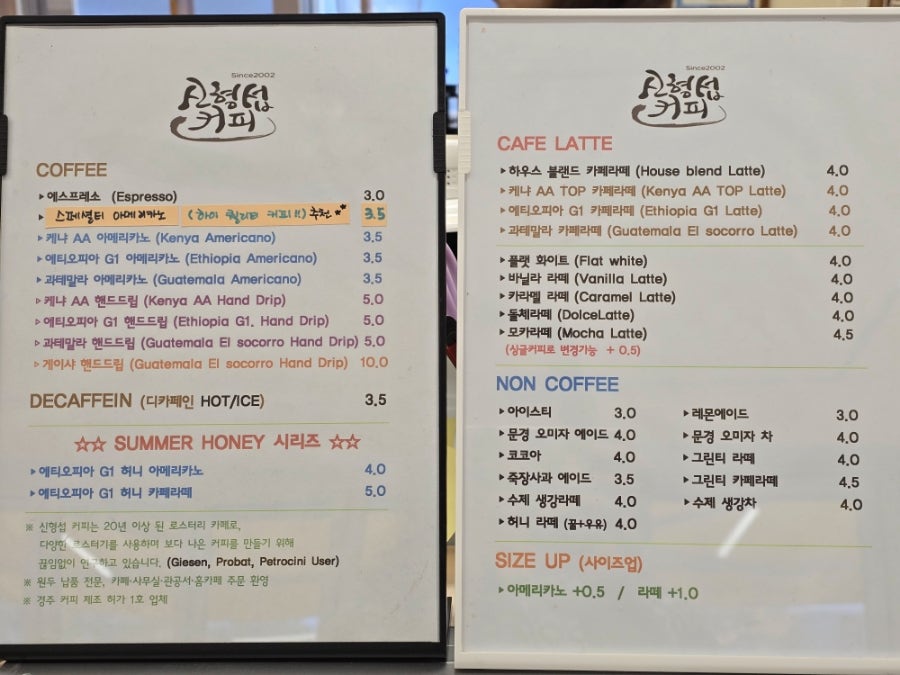 Since2002
신형섭
커피
COFFEE
▸에스프레소 (Espresso) 3.0
▸스페셜티 아메리카노 (하이 퀄리티 커피!!) 추천★★ 3.5
▹케냐 AA 아메리카노 (Kenya Americano) 3.5
▹에티오피아 G1 아메리카노 (Ethiopia Americano) 3.5
▹과테말라 아메리카노 (Guatemala Americano) 3.5
▹케냐 AA 핸드드립 (Kenya AA Hand Drip) 5.0
▹에티오피아 G1 핸드드립 (Ethiopia G1. Hand Drip) 5.0
▹과테말라 핸드드립 (Guatemala El socorro Hand Drip) 5.0
▹게이샤 핸드드립 (Guatemala El socorro Hand Drip) 10.0
DECAFFEIN (디카페인 HOT/ICE) 3.5
☆☆ SUMMER HONEY 시리즈 ☆☆
▸에티오피아 G1 허니 아메리카노 4.0
▸에티오피아 G1 허니 카페라떼 5.0
※ 신형섭 커피는 20년 이상 된 로스터리 카페로,
다양한 로스터기를 사용하며 보다 나은 커피를 만들기 위해
끊임없이 연구하고 있습니다. (Giesen, Probat, Petrocini User)
※ 원두 납품 전문, 카페·사무실·관공서·홈카페 주문 환영
※ 경주 커피 제조 허가 1호 업체
Since2002
신형섭
커피
CAFE LATTE
▸하우스 블랜드 카페라떼 (House blend Latte) 4.0
▸케냐 AA TOP 카페라떼 (Kenya AA TOP Latte) 4.0
▸에티오피아 G1 카페라떼 (Ethiopia G1 Latte) 4.0
▸과테말라 카페라떼 (Guatemala El socorro Latte) 4.0
▸플랫 화이트 (Flat white) 4.0
▸바닐라 라떼 (Vanilla Latte) 4.0
▸카라멜 라떼 (Caramel Latte) 4.0
▸돌체라떼 (DolceLatte) 4.0
▸모카라떼 (Mocha Latte) 4.5
(싱글커피로 변경가능 + 0.5)
NON COFFEE
▸아이스티 3.0 ▸레몬에이드 3.0
▸문경 오미자 에이드 4.0 ▸문경 오미자 차 4.0
▸코코아 4.0 ▸그린티 라떼 4.0
▸죽장사과 에이드 3.5 ▸그린티 카페라떼 4.5
▸수제 생강라떼 4.0 ▸수제 생강차 4.0
▸허니 라떼 (꿀+우유) 4.0
SIZE UP (사이즈업)
▸아메리카노 +0.5 / 라떼 +1.0